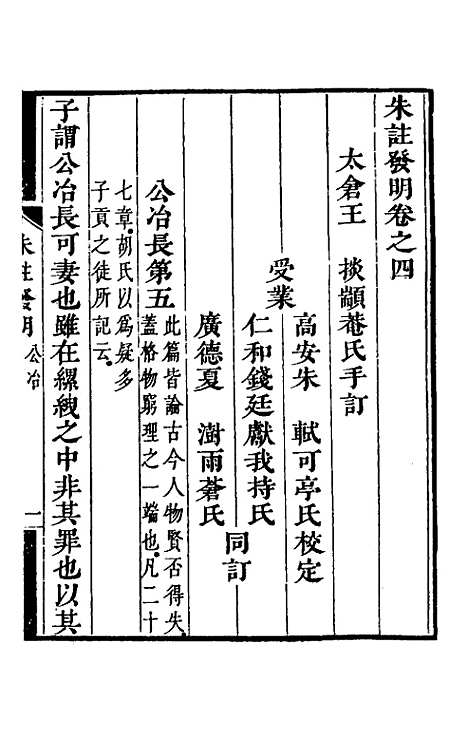 朱註發明卷之四
太倉王　掞顓菴氏手訂
受業
高安朱　軾可亭氏校定
仁和錢廷獻我持氏
廣德夏　澍雨蒼氏
同訂
公冶長第五
此篇皆論古今人物賢否得失
蓋格物窮理之一端也凡二十
七章胡氏以為疑多
子貢之徒所記云
子謂公冶長可妻也雖在縲絏之中非其罪也以其
朱註發明
公冶
一